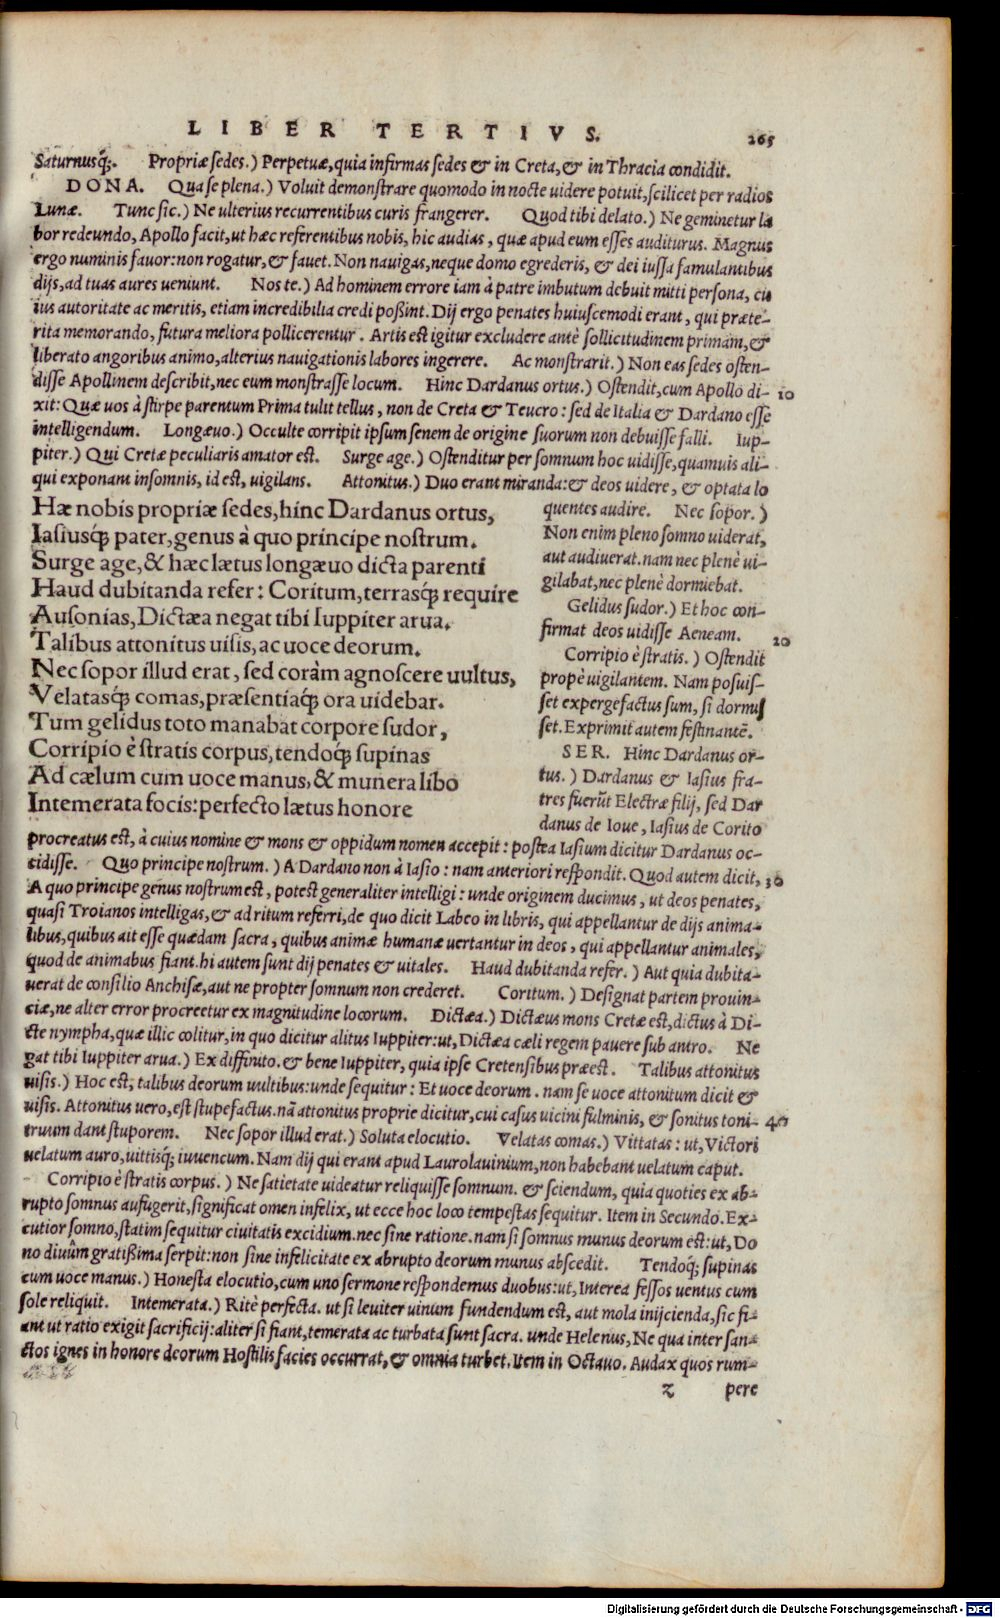 LIBER TERTIVS. 265
Saturnusq́;. Propriæ sedes.) Perpetuæ, quia infirmas sedes & in Creta, & in Thracia condidit.
DONA. Qua se plena.) Voluit demonstrare quomodo in nocte uidere potuit, scilicet per radios
Lunæ. Tunc sic.) Ne ulterius recurrentibus curis frangerer. Quod tibi delato.) Ne geminetur la
bor redeundo, Apollo facit, ut hæc referentibus nobis, hic audias, quæ apud eum esses auditurus. Magnus
ergo numinis fauor: non rogatur, & fauet. Non nauigas, neque domo egrederis, & dei iussa famulantibus
dijs, ad tuas aures ueniunt. Nos te.) Ad hominem errore iam à patre imbutum debuit mitti persona, cu
ius autoritate ac meritis, etiam incredibilia credi poßint. Dij ergo penates huiuscemodi erant, qui præte-
rita memorando, futura meliora pollicerentur. Artis est igitur excludere antè sollicitudinem primam, &
liberato angoribus animo, alterius nauigationis labores ingerere. Ac monstrarit.) Non eas sedes osten-
disse Apollinem describit, nec eum monstrasse locum. Hinc Dardanus ortus.) Ostendit, cum Apollo di- 10
xit: Quæ uos à stirpe parentum Prima tulit tellus, non de Creta & Teucro: sed de Italia & Dardano esse
intelligendum. Longæuo.) Occulte corripit ipsum senem de origine suorum non debuisse falli. Iup-
piter.) Qui Cretæ peculiaris amator est. Surge age.) Ostenditur per somnum hoc uidisse, quamuis ali-
qui exponant insomnis, id est, uigilans. Attonitus.) Duo erant miranda: & deos uidere, & optata lo
Hæ nobis propriæ sedes, hinc Dardanus ortus,
Iasiusq́; pater, genus à quo principe nostrum.
Surge age, & hæc lætus longæuo dicta parenti
Haud dubitanda refer: Coritum, terrasq́; require
Ausonias, Dictæa negat tibi Iuppiter arua.
Talibus attonitus uisis, ac uoce deorum.
Nec sopor illud erat, sed coràm agnoscere uultus,
Velatasq́; comas, præsentiaq́; ora uidebar.
Tum gelidus toto manabat corpore sudor,
Corripio è stratis corpus, tendoq́; supinas
Ad cælum cum uoce manus, & munera libo
Intemerata focis: perfecto lætus honore
quentes audire. Nec sopor.)
Non enim pleno somno uiderat,
aut audiuerat. nam nec plenè ui-
gilabat, nec plenè dormiebat.
Gelidus sudor.) Et hoc con-
firmat deos uidisse Aeneam. 20
Corripio è stratis.) Ostendit
propè uigilantem. Nam posuis-
set expergefactus sum, si dormis
set. Exprimit autem festinantē.
SER. Hinc Dardanus or-
tus.) Dardanus & Iasius fra-
tres fuerũt Electræ filij, sed Dar
danus de Ioue, Iasius de Corito
procreatus est, à cuius nomine & mons & oppidum nomen accepit: postea Iasium dicitur Dardanus oc-
cidisse. Quo principe nostrum.) A Dardano non à Iasio: nam anteriori respondit. Quod autem dicit, 30
A quo principe genus nostrum est, potest generaliter intelligi: unde originem ducimus, ut deos penates,
quasi Troianos intelligas, & ad ritum referri, de quo dicit Labeo in libris, qui appellantur de dijs anima-
libus, quibus ait esse quædam sacra, quibus animæ humanæ uertantur in deos, qui appellantur animales,
quod de animabus fiant. hi autem sunt dij penates & uitales. Haud dubitanda refer.) Aut quia dubita-
uerat de consilio Anchisæ, aut ne propter somnum non crederet. Coritum.) Designat partem prouin-
ciæ, ne alter error procreetur ex magnitudine locorum. Dictæa.) Dictæus mons Cretæ est, dictus à Di-
cte nympha, quæ illic colitur, in quo dicitur alitus Iuppiter: ut, Dictæa cæli regem pauere sub antro. Ne
gat tibi Iuppiter arua.) Ex diffinito. & bene Iuppiter, quia ipse Cretensibus præest. Talibus attonitus
uisis.) Hoc est, talibus deorum uultibus: unde sequitur: Et uoce deorum. nam se uoce attonitum dicit &
uisis. Attonitus uero, est stupefactus. nã attonitus proprie dicitur, cui casus uicini fulminis, & sonitus toni- 40
truum dant stuporem. Nec sopor illud erat.) Soluta elocutio. Velatas comas.) Vittatas: ut, Victori
uelatum auro, uittisq́; iuuencum. Nam dij qui erant apud Laurolauinium, non habebant uelatum caput.
Corripio è stratis corpus.) Ne satietate uideatur reliquisse somnum. & sciendum, quia quoties ex ab-
rupto somnus aufugerit, significat omen infelix, ut ecce hoc loco tempestas sequitur. Item in Secundo. Ex-
cutior somno, statim sequitur ciuitatis excidium. nec sine ratione. nam si somnus munus deorum est: ut, Do
no diuûm gratißima serpit: non sine infelicitate ex abrupto deorum munus abscedit. Tendoq́; supinas
cum uoce manus.) Honesta elocutio, cum uno sermone respondemus duobus: ut, Interea fessos uentus cum
sole reliquit. Intemerata.) Ritè perfecta. ut si leuiter uinum fundendum est, aut mola inijcienda, sic fi-
ant ut ratio exigit sacrificij: aliter si fiant, temerata ac turbata sunt sacra. unde Helenus, Ne qua inter san-
ctos ignes in honore deorum Hostilis facies occurrat, & omnia turbet. Item in Octauo. Audax quos rum-
z pere
Digitalisierung gefördert durch die Deutsche Forschungsgemeinschaft - DFG